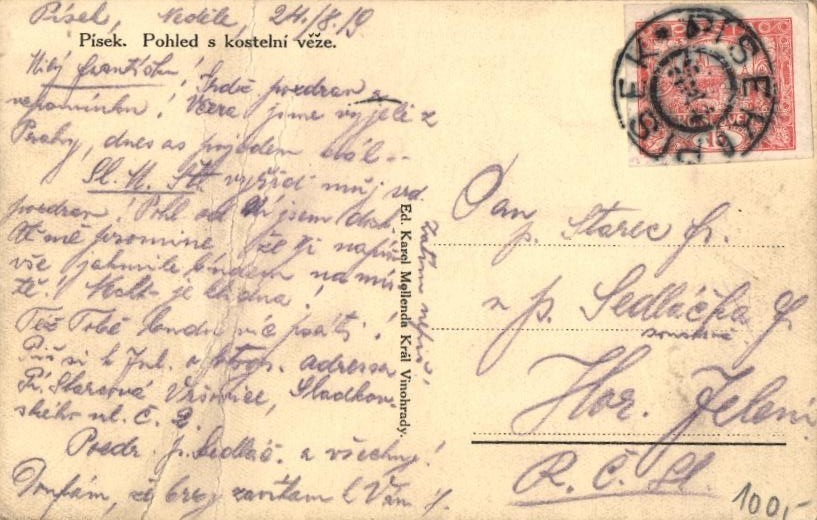 Písek, Neděle, 24./8.19
Písek. Pohled s kostelní věže.
Milý Františku! Srdč. pozdrav a
vzpomínku! Včera jsme vyjeli z
Prahy, dnes as pojedem dál --
Sl. M. St. vyřiď můj srd.
pozdrav! Pohl. od ní jsem dost.
Ať mě promine, že jí napíši
vše jakmile budem na mís-
tě!
Též Tobě budu víc psáti!
Piš si k Jul. adressa
Fr. Starcová Vršovice, Sladkov-
ského ul. č. 2.
Pozdr. p. Sedláč. a všechny!
Doufám, že brzy zavítám k Vám
Zatím nepiš!
Ed. Karel Mollenda Král Vinohrady.
PÍSEK
15
Pan
p. Starec Fr.
u p. Sedláčka
Hor. Jelení
R. Č. Sl.
100,-